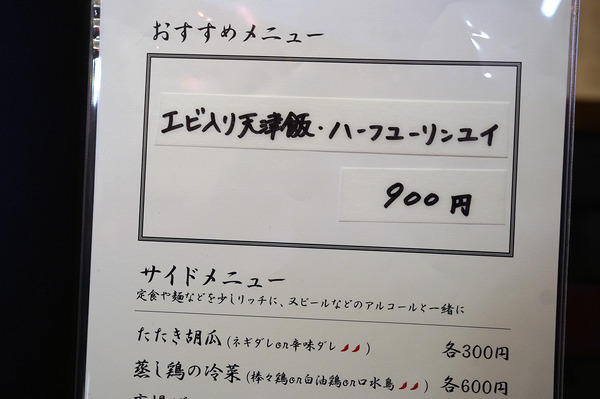 おすすめメニュー
エビ入り天津飯・ハーフユーリンユイ
900円
サイドメニュー
定食や麺などを少しリッチに、又ビールなどのアルコールと一緒に
たたき胡瓜(ネギダレor辛味ダレ) 各300円
蒸し鶏の冷菜(棒々鶏or白油鶏or口水鳥) 各600円